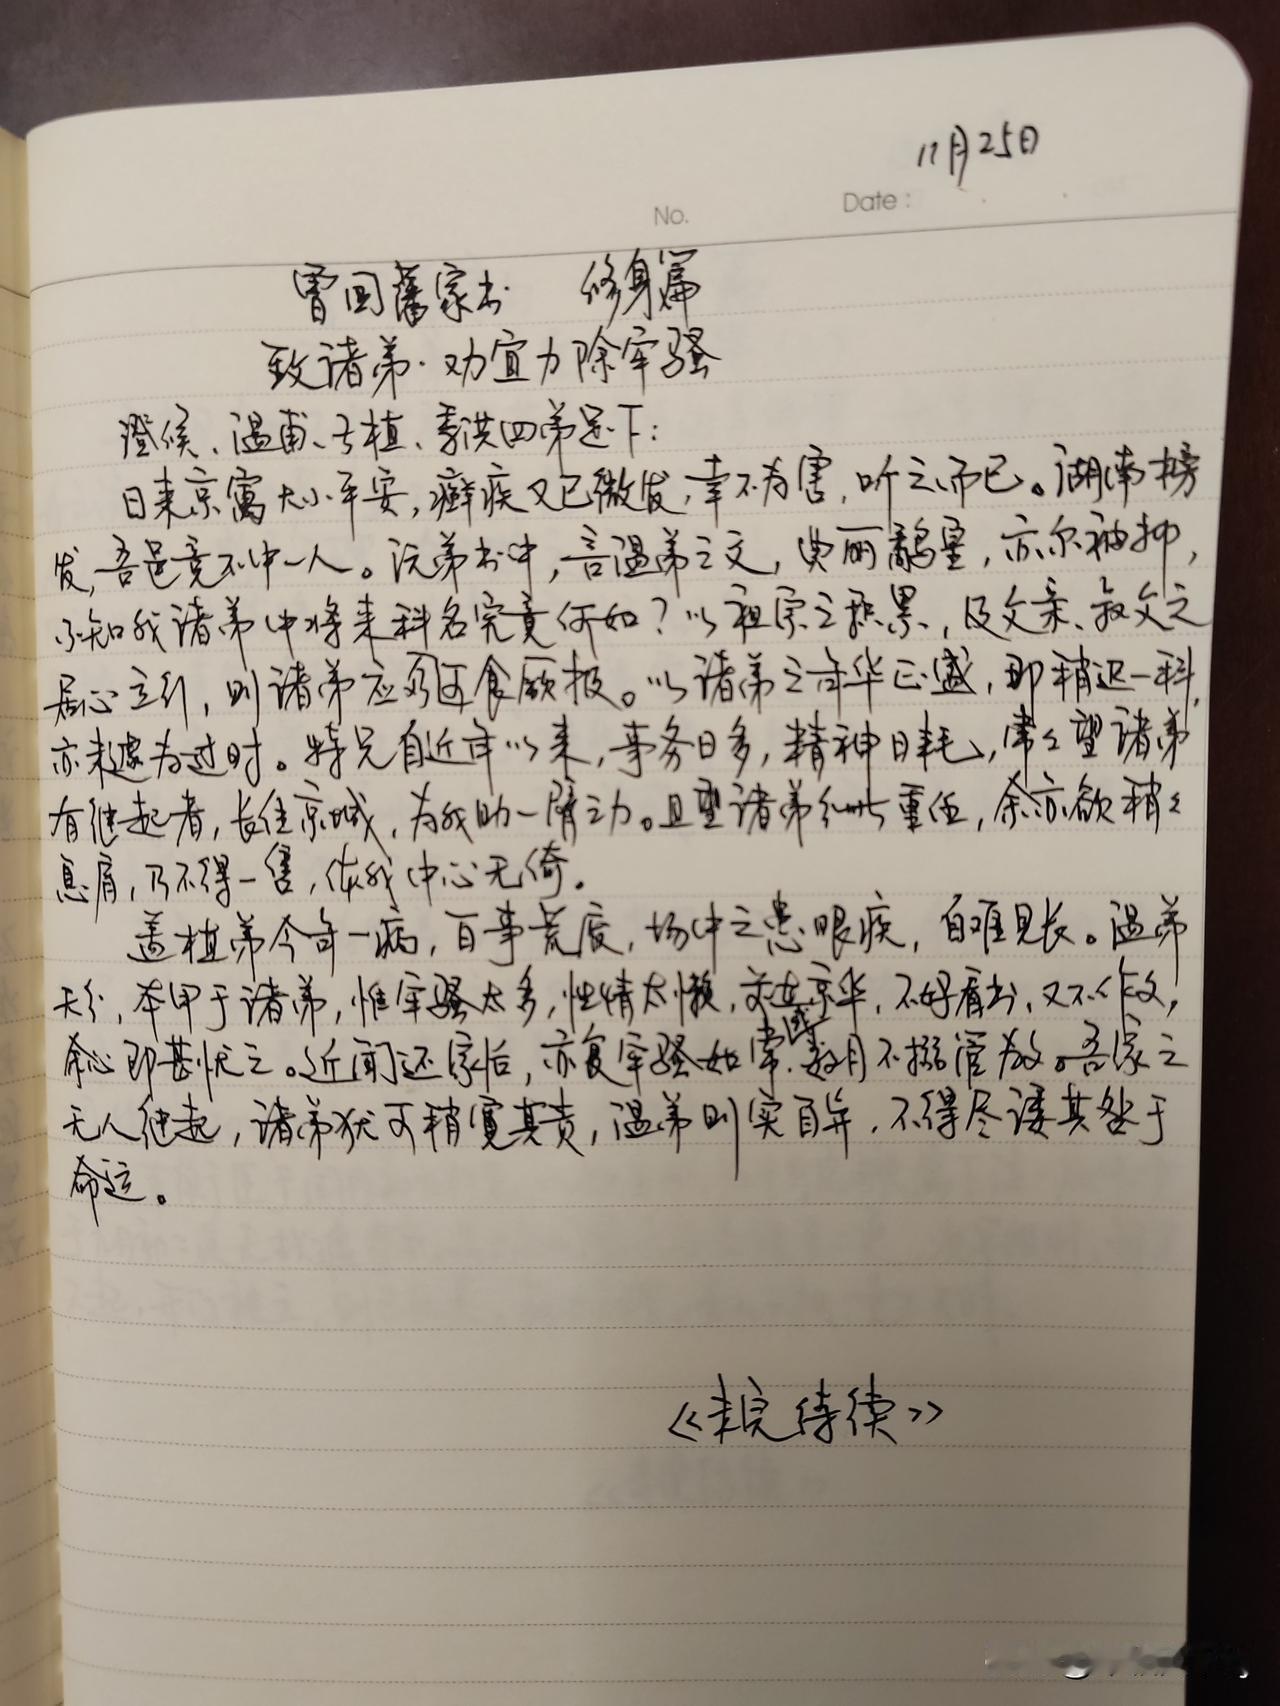 11月25日
No.
Date :
曾国藩家书 修身篇
致诸弟·劝宜力除牢骚
澄候、温甫、子植、季洪四弟足下：
日来京寓大小平安，癣疾又已微发，幸不为害，听之而已。湖南榜
发，吾邑竟不中一人。沅弟书中，言温弟之文，典丽矞皇，亦尔被抑，
不知我诸弟中将来科名究竟何如？以祖宗之积累，及父亲、叔父之
居心立行，则诸弟应可食厥报。以诸弟之年华正盛，即稍迟一科，
亦未遽为过时。特兄自近年以来，事务日多，精神日耗，常々望诸弟
有继起者，长住京城，为我助一臂之力。且望诸弟分此重任，余亦欲稍々
息肩，乃不得一售，使我中心无倚。
盖植弟今年一病，百事荒废，场中之患眼疾，自难见长。温弟
天分，本甲于诸弟，惟牢骚太多，性情太懒，前在京华，不好看书，又不作文，
余心即甚忧之。近闻还家后，亦复牢骚如常，或数月不搦管为文。吾家之
无人继起，诸弟犹可稍宽其责，温弟则实自弃，不得尽诿其咎于
命运。
《未完待续》